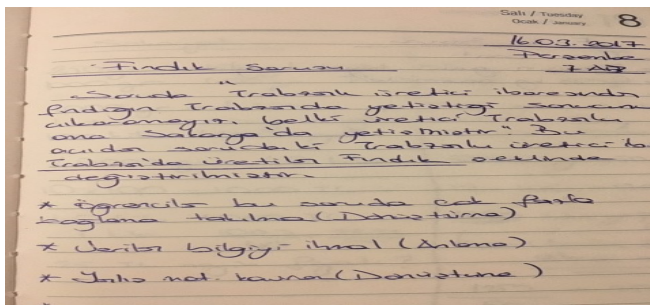 Salı / Tuesday
Ocak / January 8
16.03.2017
Perşembe
Fındık Sorusu 7 AB
"Soruda Trabzonlu üretici ibaresinden
fındığın Trabzonda yetiştiği sonucunu
çıkaramayız, belki üretici Trabzonlu
ama Sakarya'da yetişmiştir" Bu
açıdan sorudaki Trabzonlu üretici de
Trabzon'da üretilen Fındık şeklinde
değiştirilmiştir.
* Öğrenciler bu soruda çok fazla
bağlama takılma (Dönüştürme)
* Verilen bilgiyi ihmal (Anlama)
* Yanlış mat. kavram (Dönüştürme)